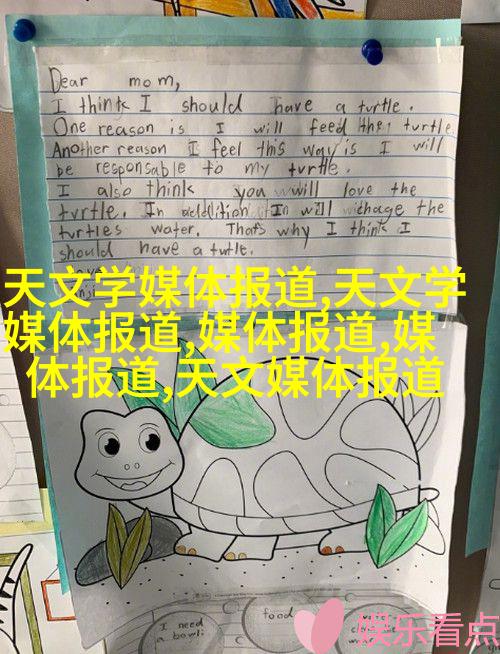 Dear mom,
I think I should have a turtle.
One reason is I will feed the turtle.
Another reason I feel this way is I will
be responsable to my turtle.
I also think you will love the
turtle. In addition I will chage the
turtles water. Thats why I think I
should have a turtle.
天文学媒体报道,天文学
媒体报道,媒体报道,媒
体报道,天文媒体报道
I need
a bowl
food
娱乐看点